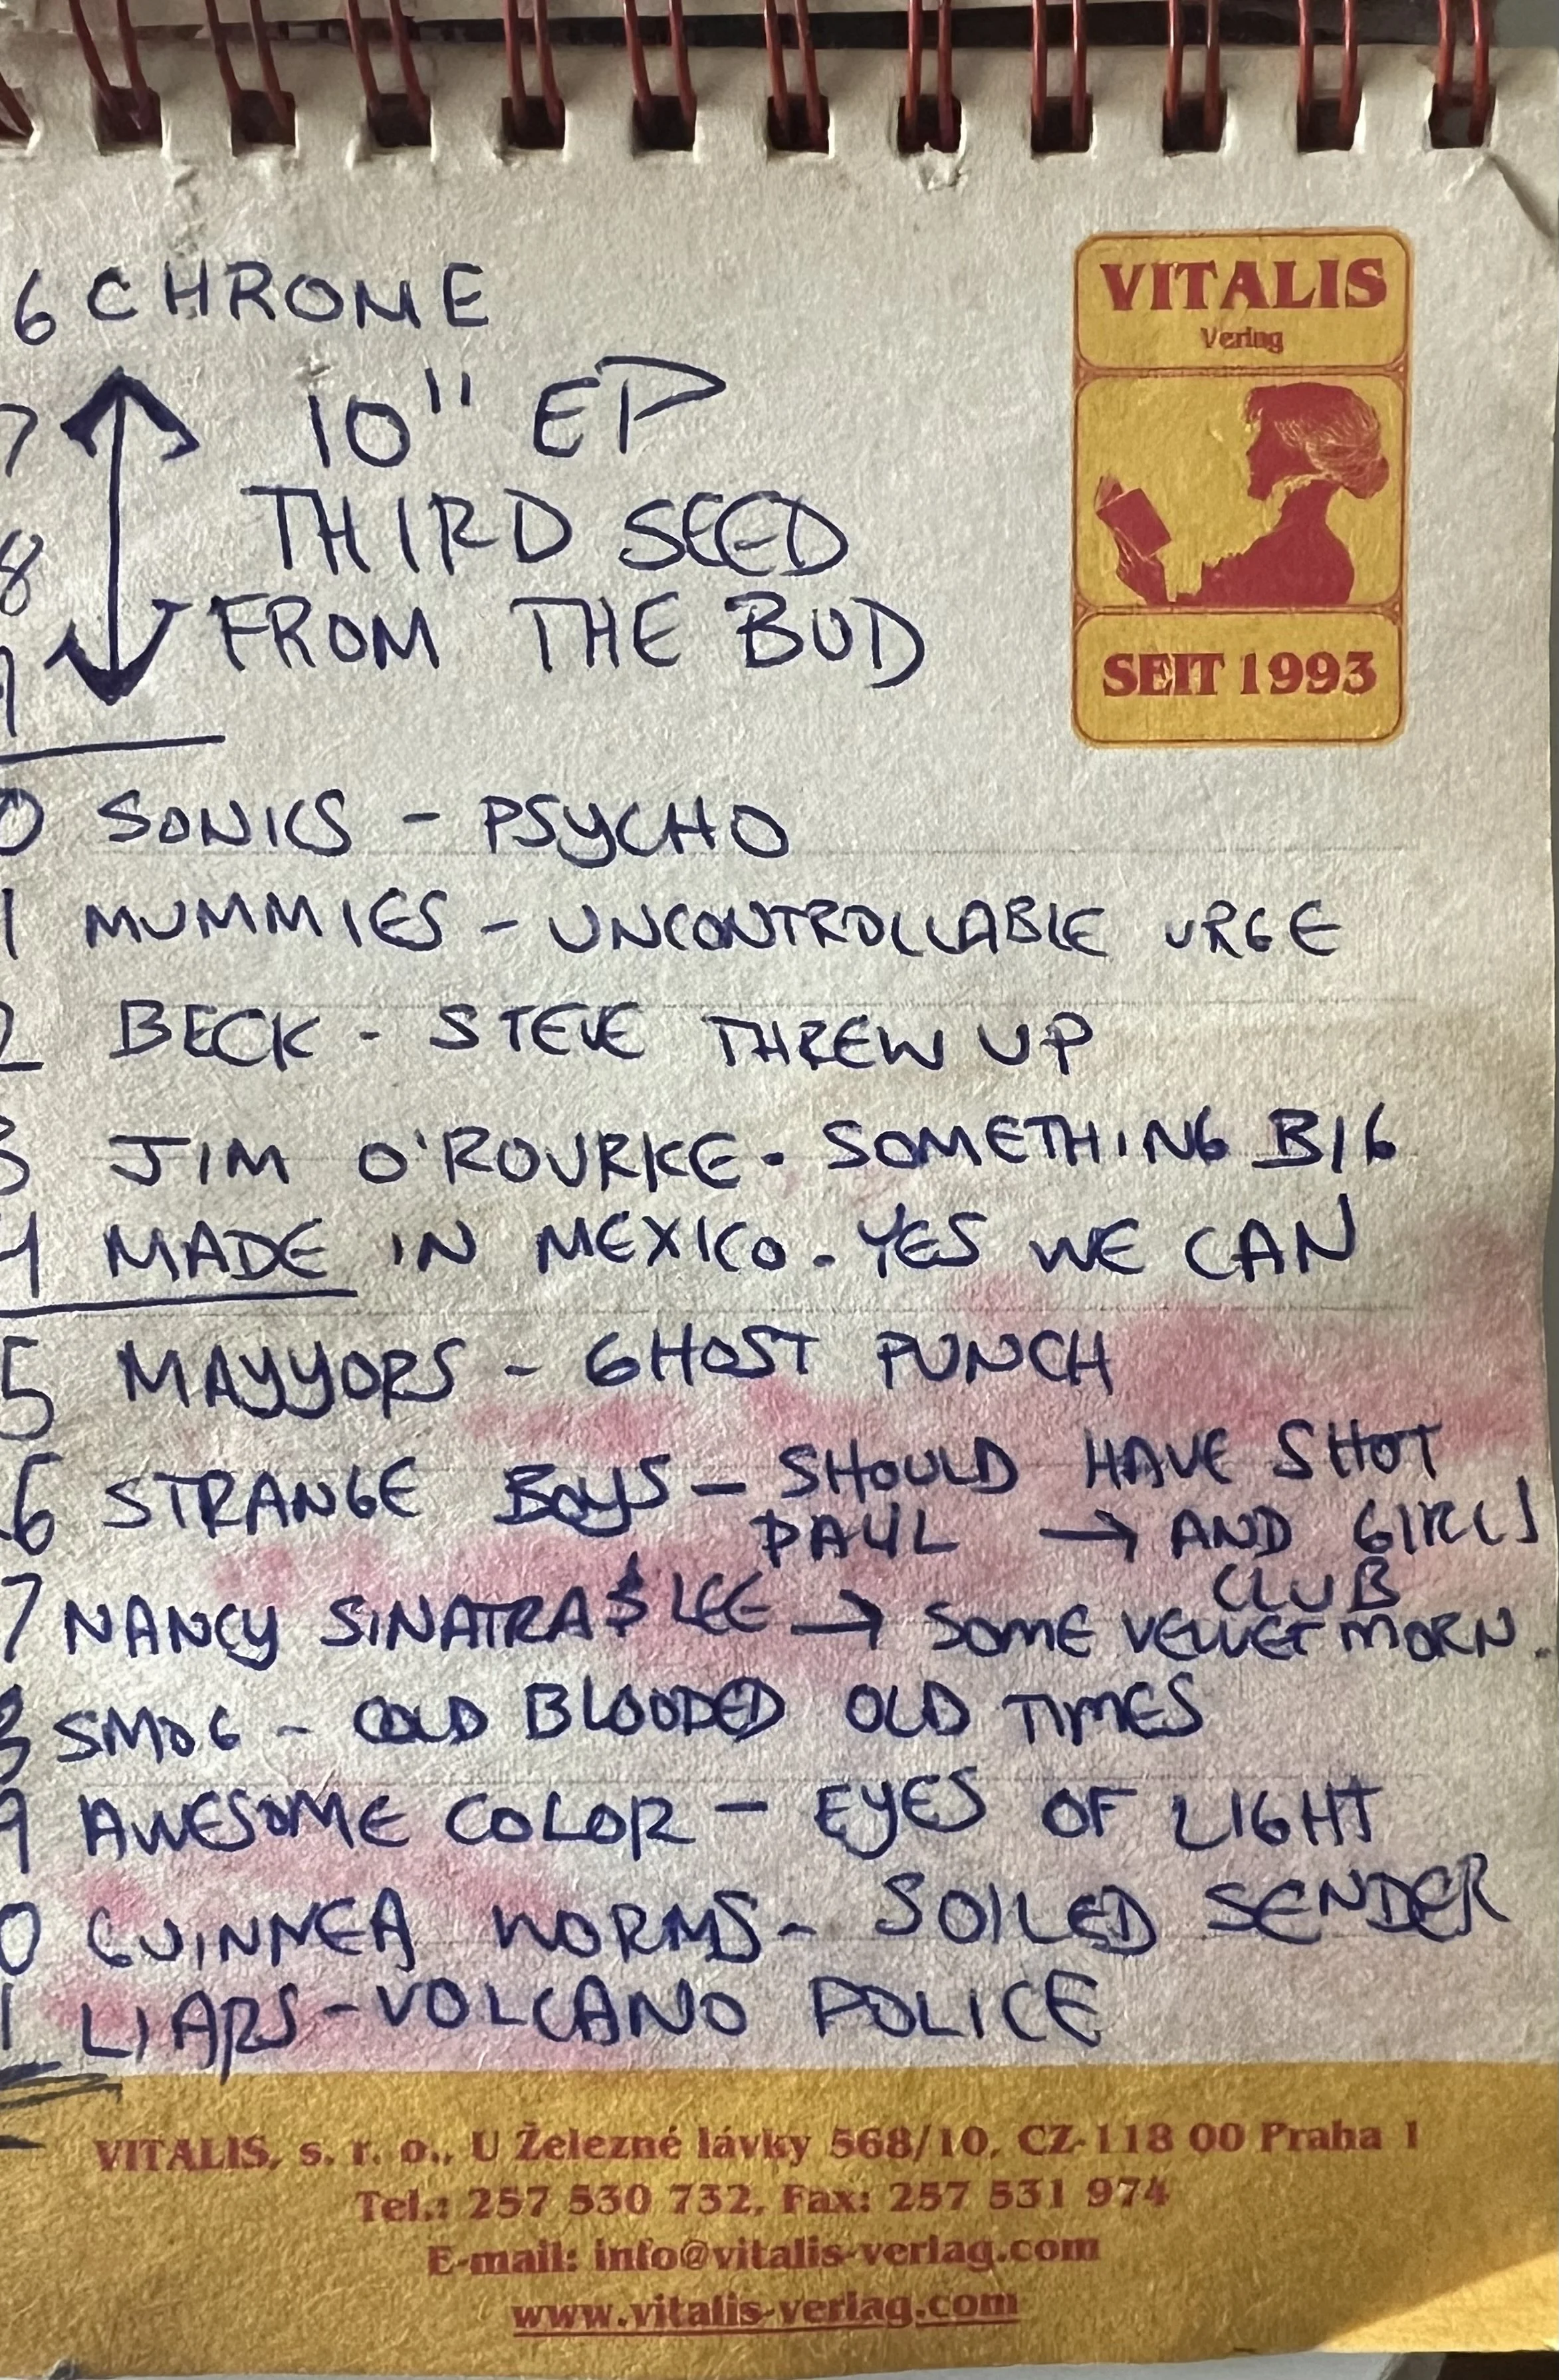 VITALIS
Verlag
SEIT 1993
6 CHROME
7 10" EP
8 THIRD SEED
9 FROM THE BUD
0 SONICS - PSYCHO
1 MUMMIES - UNCONTROLLABLE URGE
2 BECK - STEVE THREW UP
3 JIM O'ROURKE - SOMETHING BIG
4 MADE IN MEXICO - YES WE CAN
5 MAYYORS - GHOST PUNCH
6 STRANGE BOYS - SHOULD HAVE SHOT
PAUL → AND GIRLS
CLUB
7 NANCY SINATRA & LEE → SOME VELVET MORN.
8 SMOG - COLD BLOODED OLD TIMES
9 AWESOME COLOR - EYES OF LIGHT
0 GUINNEA WORMS - SOILED SENDER
1 LIARS - VOLCANO POLICE
VITALIS, s. r. o., U Železné lávky 568/10, CZ-118 00 Praha 1
Tel.: 257 530 732, Fax: 257 531 974
E-mail: info@vitalis-verlag.com
www.vitalis-verlag.com